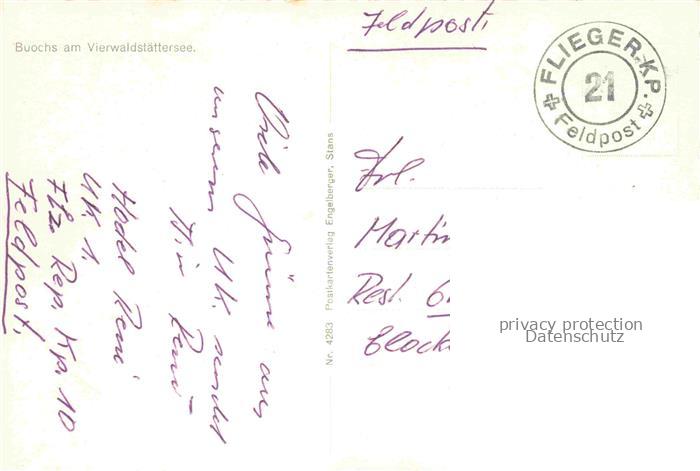 Buochs am Vierwaldstättersee.
Feldpost.
FLIEGER.KP.
21
Feldpost
Viele Grüsse aus
unserem UK. sendet
René
Hodel René
UK 1.
Flz. Rep. Kp. 10
Feldpost.
Nr. 4283 Postkartenverlag Engelberger, Stans
Frl.
Martin
Rest.
privacy protection
Datenschutz